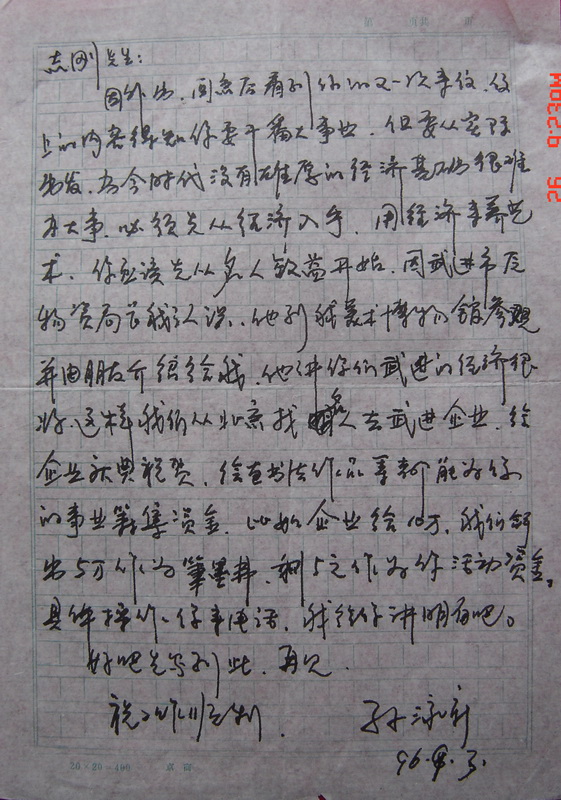 志刚先生:
因外出,回京后看到你的又一次来信,信
上的内容得知你要干番大事业,但要从实际
出发,当今时代没有雄厚的经济基础很难
办大事,必须先从经济入手,用经济来养艺
术,你应该先从名人效益开始,因武进市原
物资局长我认识,他到我美术博物馆参观
并由朋友介绍给我,他讲你们武进的经济很
好,这样我们从北京找名人去武进企业,给
企业庆典祝贺,绘画书法作品等都能为你
的事业筹集资金,比如企业给10万,我们拿
出5万作为笔墨费,剩5万作为你活动资金。
具体操作,你来电话,我给你讲明白吧。
好吧先写到此,再见.
祝工作顺利.
孙泳新
96.9.3.
20×20=400